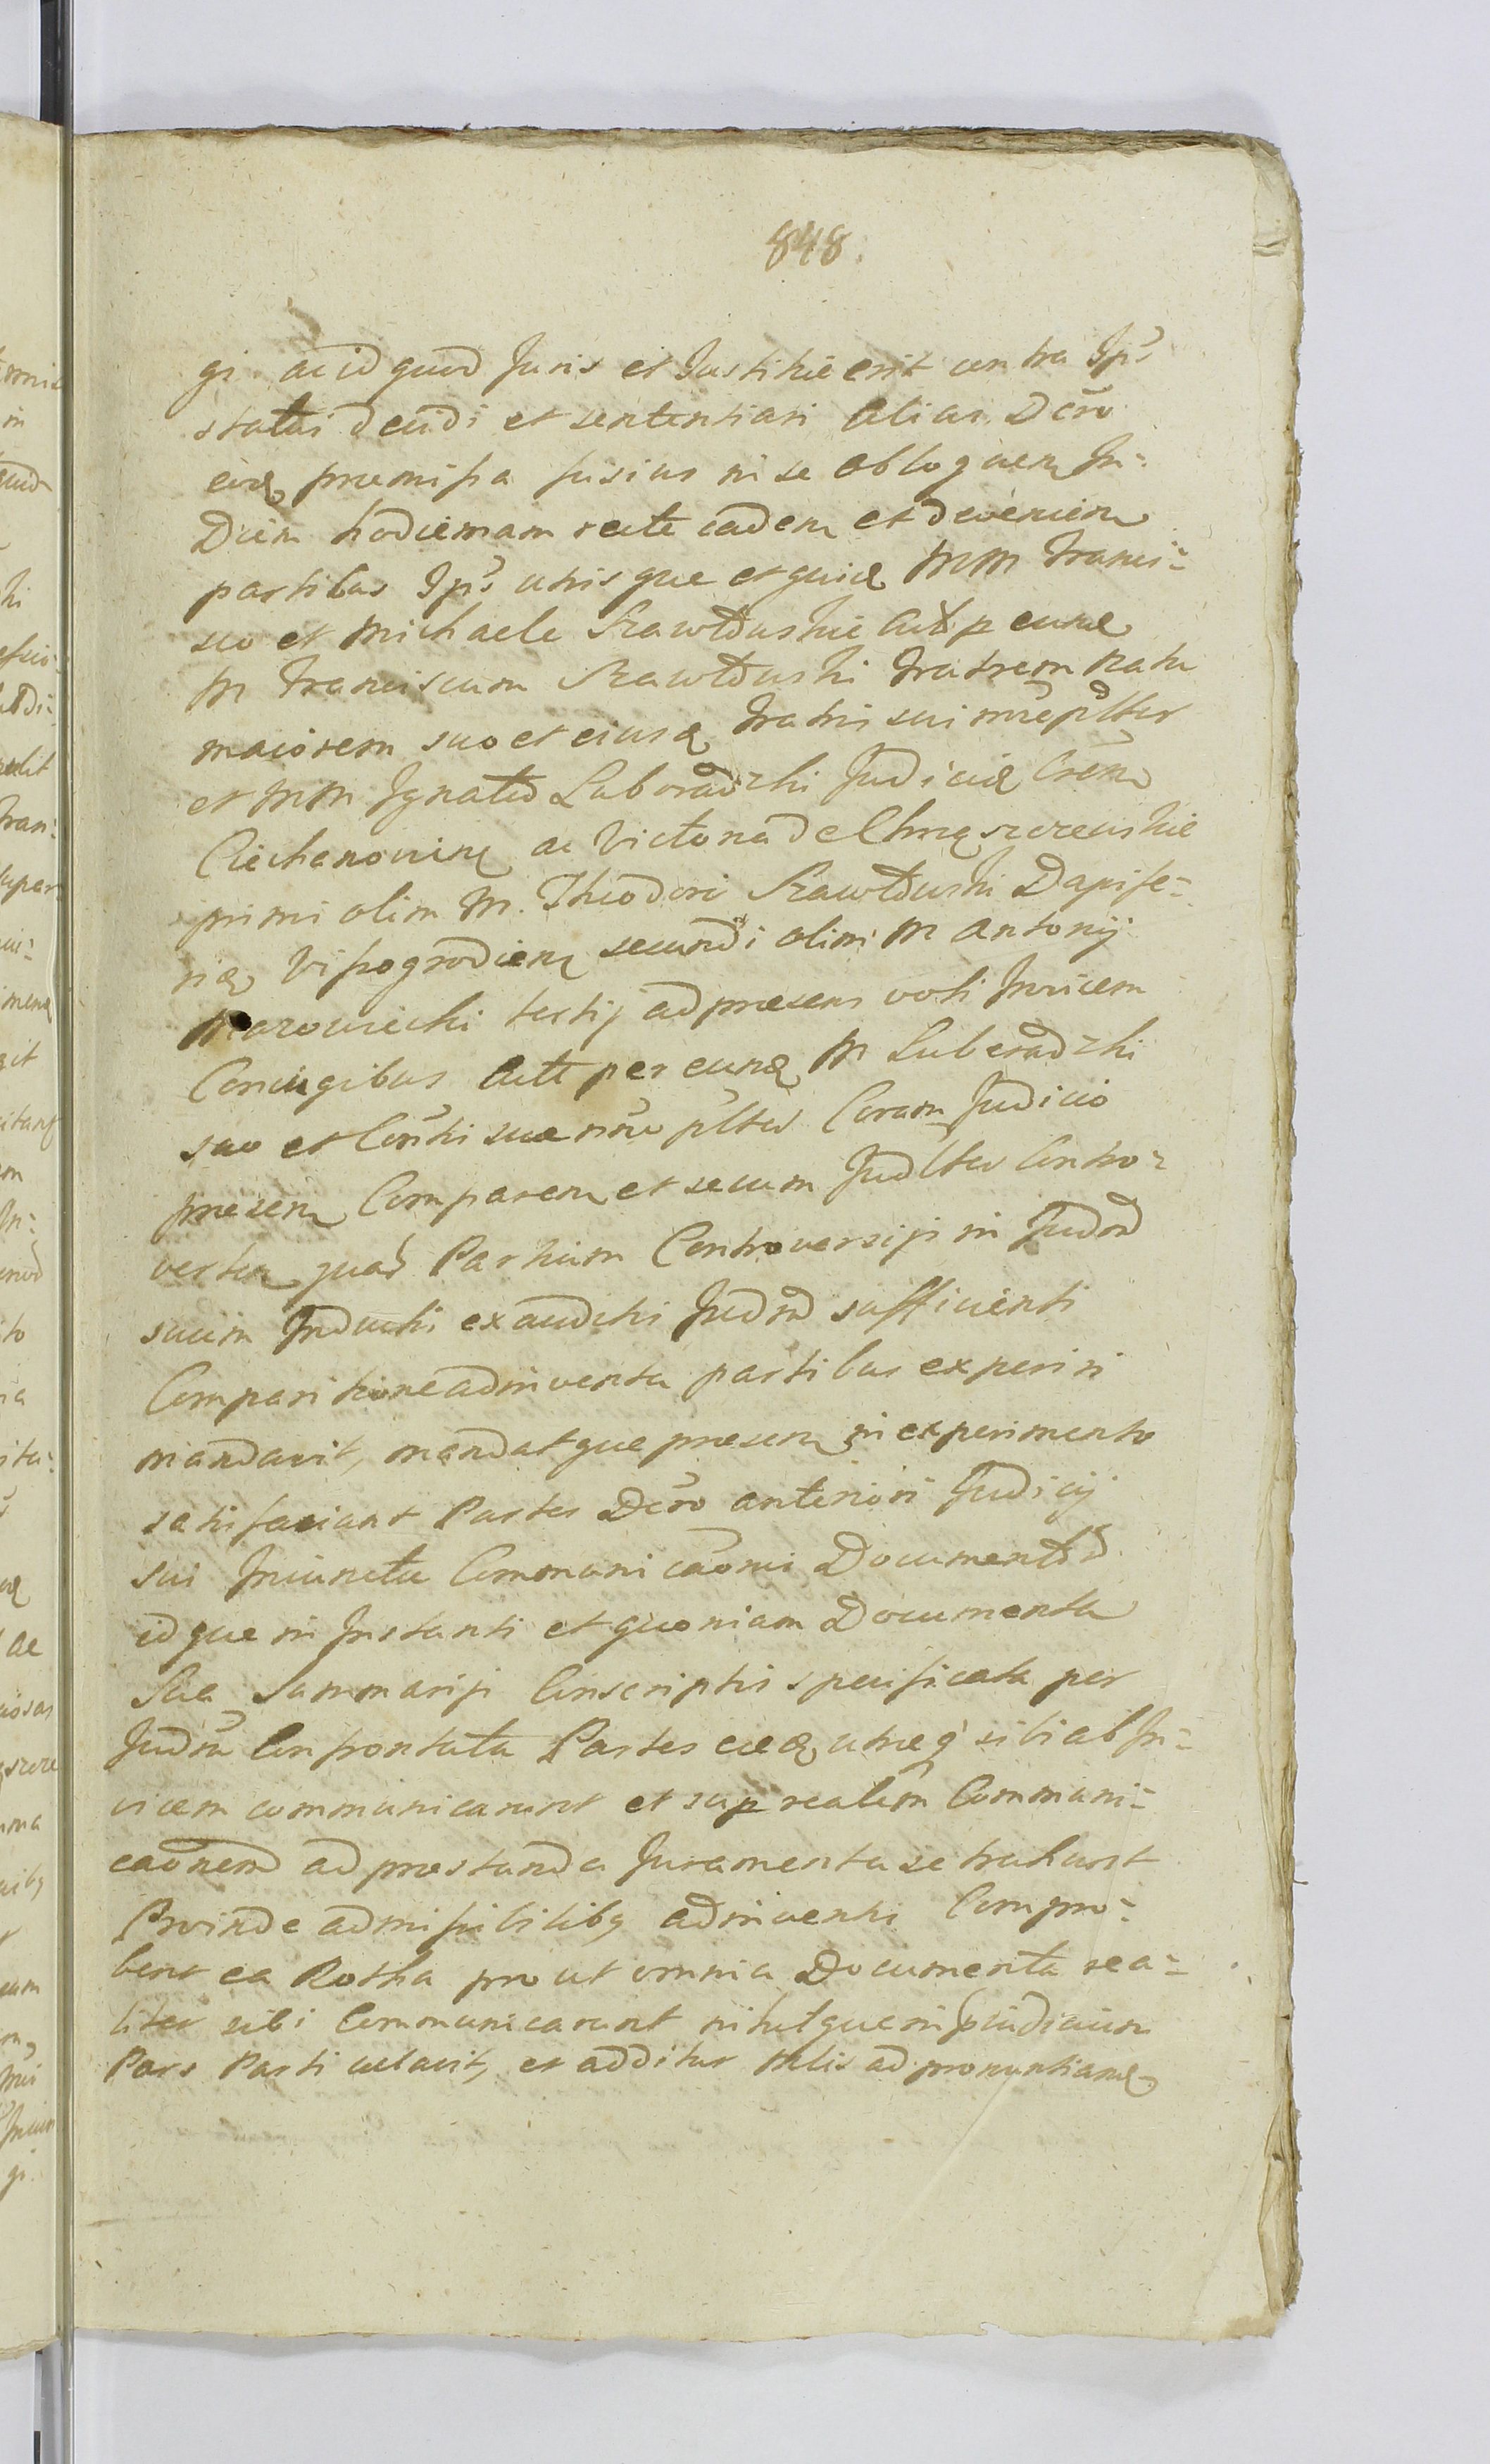 848.
gi ac id quod Juris et Justitiæ erit contra Ips
statui decidi et sententiari Alias Dcro
eoq præmissa fusius in se obloquen In-
Diem hodiernam recte caden et devenien
partibus Ips utrisque et quidem MM Franci-
sco et Michaele Rawłduskie Act per eund
M Franciscum Rawłduski Fratrem natu
maiorem suo et eiusd Fratris sui nne pltter
et MM Ignatio Luboradzki Judicid Cren
Ciechanovien ac Victoria de Chrąszczewskie
primi olim M. Theodori Rawłduski Dapife-
ri Vissogrodien secundi olim M Antonij
Mazowiecki tertij ad præsens voti Invicem
Coniugibus Actt per eund M Luboradzki
suo et Conthi suæ nne pltter Coram Judicio
presen Comparen et secum Judltter Contro-
verten quar Partium Controversijs in Judm
suum Inductis exauditis Judm sufficienti
Comparitione adinventa partibus experiri
mandavit, mandatque presen in experimento
satisfaciant Partes Dcro anteriori Judicij
sui Iniunctæ Communicaoni Documentor
idque in Instanti et quoniam Documenta
Sua Summarijs Conscriptis specificata per
Judm Confrontata Partes eæd utræq sibi ab In-
vicem communicarunt et sup realem Communi-
caonem ad præstanda Juramenta se trahunt
Proinde admissibilibq adinventis Compro-
bent ea Rotha prout omnia Documenta rea-
liter sibi Communicarunt nihilque in pjudicium
Pars Parti celavit, et additur Mlis ad pronuntiand